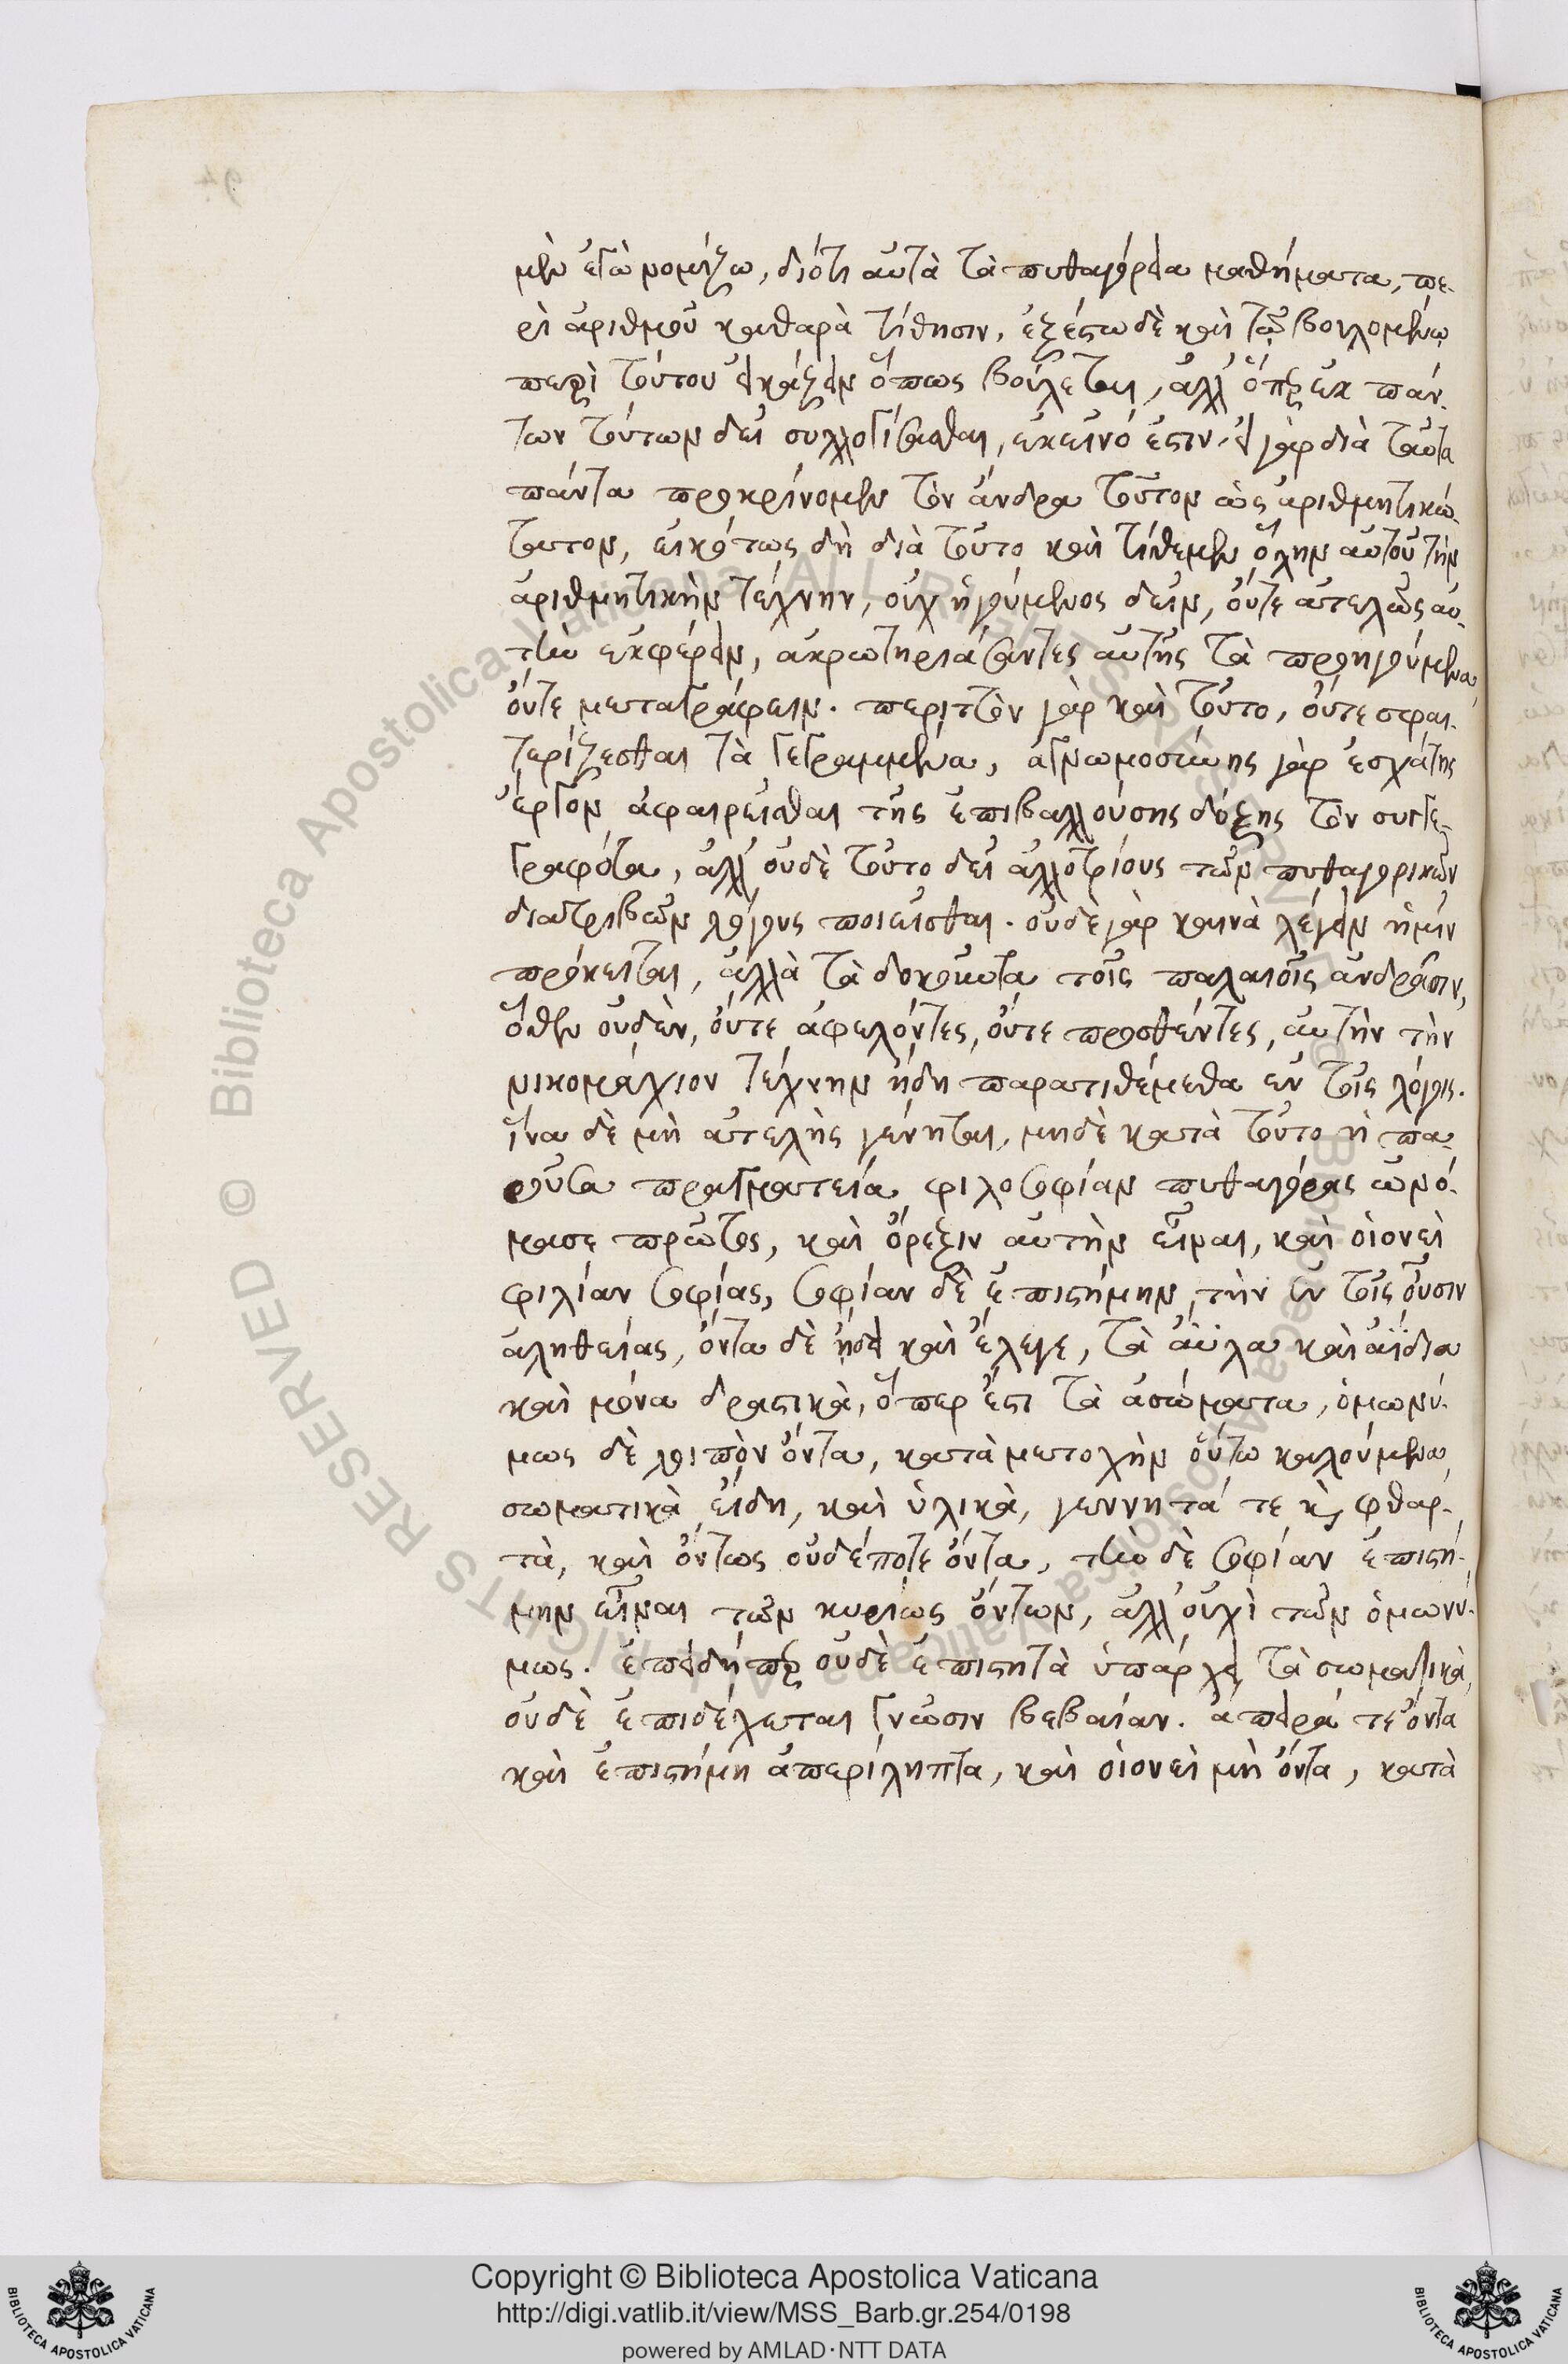 μὲν ἐγὼ νομίζω, διότι αὐτὰ τὰ πυθαγόρεια μαθήματα, πε-
ρὶ ἀριθμοῦ καθαρὰ τίθησιν, ἐξέστω δὲ καὶ τῷ βουλομένῳ
περὶ τούτου εἰκάζειν ὅπως βούλεται, ἀλλ' ὅπερ ἐκ πάν-
των τούτων δεῖ συλλογίσασθαι, ἐκεῖνό ἐστιν· εἰ γὰρ διὰ ταῦτα
πάντα προκρίνομεν τὸν ἄνδρα τοῦτον ὡς ἀριθμητικώ-
τατον, εἰκότως δὴ διὰ τοῦτο καὶ τίθεμεν ὅλην αὐτοῦ τὴν
ἀριθμητικὴν τέχνην, οὐχ ἡγούμενος δεῖν, οὔτε ἀτελῶς αὐ-
τὴν ἐκφέρειν, ἀκρωτηριάσαντες αὐτῆς τὰ προηγούμενα,
οὔτε μεταγράφειν. περιττὸν γὰρ καὶ τοῦτο, οὔτε σφαι-
τερίζεσθαι τὰ γεγραμμένα, ἀγνωμοσύνης γὰρ ἐσχάτης
ἔργον ἀφαιρεῖσθαι τῆς ἐπιβαλλούσης δόξης τὸν συγγε-
γραφότα, ἀλλ' οὐδὲ τοῦτο δεῖ ἀλλοτρίους τῶν πυθαγορικῶν
διατριβῶν λόγους ποιεῖσθαι. οὐδὲ γὰρ καινὰ λέγειν ἡμῖν
πρόκειται, ἀλλὰ τὰ δοκοῦντα τοῖς παλαιοῖς ἀνδράσιν,
ὅθεν οὐδὲν, οὔτε ἀφελόντες, οὔτε προσθέντες, αὐτὴν τὴν
νικομάχιον τέχνην ἤδη παρατιθέμεθα ἐν τοῖς λόγοις.
ἵνα δὲ μὴ ἀτελὴς γένηται, μηδὲ κατὰ τοῦτο ἡ πα-
ροῦσα πραγματεία, φιλοσοφίαν πυθαγόρας ὠνό-
μασε πρῶτος, καὶ ὄρεξιν αὐτὴν εἶναι, καὶ οἱονεὶ
φιλίαν σοφίας, σοφίαν δὲ ἐπιστήμην, τὴν ἐν τοῖς οὖσιν
ἀληθείας, ὄντα δὲ ᾔδει καὶ ἔλεγε, τὰ ἄϋλα καὶ ἀΐδια
καὶ μόνα δραστικὰ, ὅπερ ἐστὶ τὰ ἀσώματα, ὁμωνύ-
μως δὲ λοιπὸν ὄντα, κατὰ μετοχὴν οὕτω καλούμενα,
σωματικὰ εἴδη, καὶ ὑλικὰ, γεννητά τε καὶ φθαρ-
τὰ, καὶ ὄντως οὐδέποτε ὄντα, τὴν δὲ σοφίαν ἐπιστή-
μην εἶναι τῶν κυρίως ὄντων, ἀλλ' οὐχὶ τῶν ὁμωνύ-
μως. ἐπειδήπερ οὐδὲ ἐπιστητὰ ὑπάρχει τὰ σωματικὰ,
οὐδὲ ἐπιδέχεται γνῶσιν βεβαίαν. ἄπειρά τε ὄντα
καὶ ἐπιστήμῃ ἀπερίληπτα, καὶ οἱονεὶ μὴ ὄντα, κατὰ
Copyright © Biblioteca Apostolica Vaticana
http://digi.vatlib.it/view/MSS_Barb.gr.254/0198
powered by AMLAD·NTT DATA